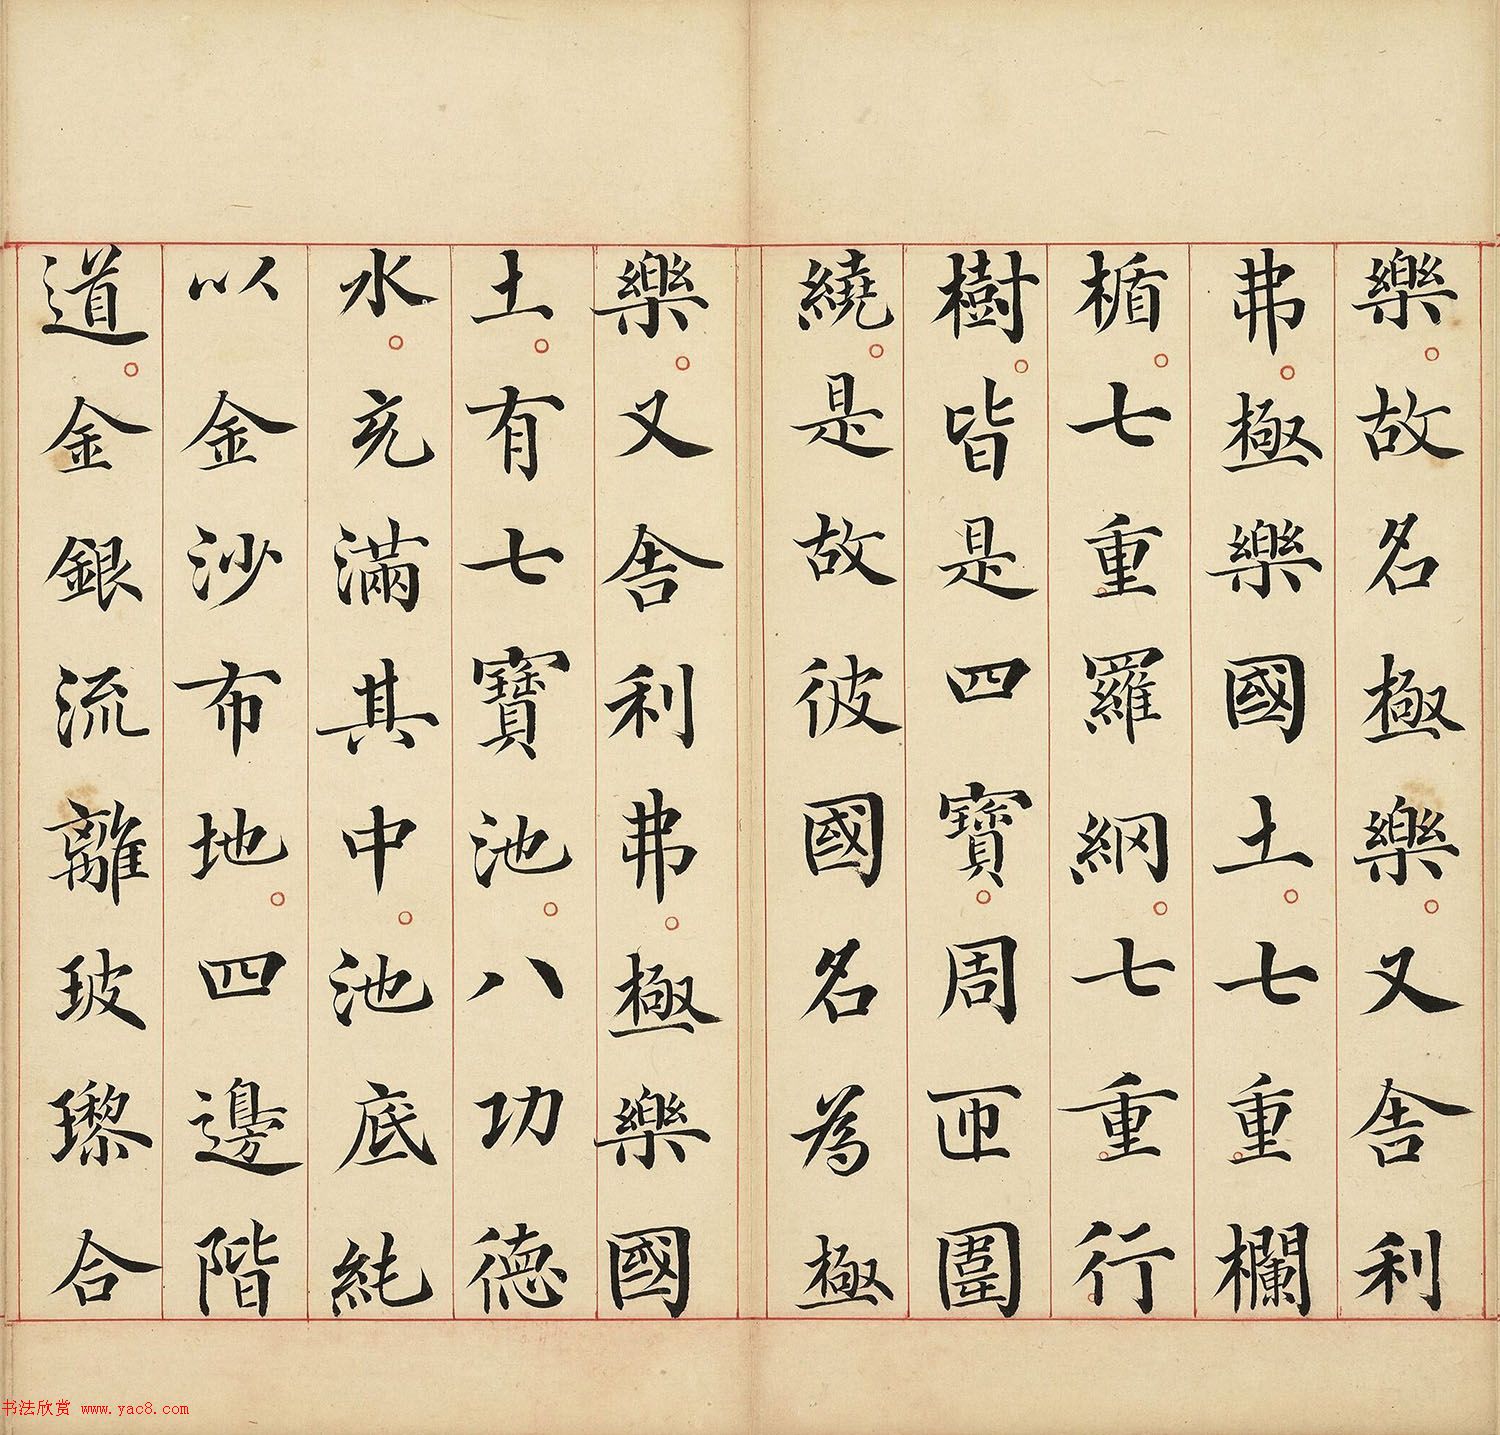 樂。故名極樂。又舎利
弗。極樂國土。七重欄
楯。七重羅網。七重行
樹。皆是四寶。周匝圍
繞。是故彼國名為極
樂。又舎利弗。極樂國
土。有七寶池。八功德
水。充滿其中。池底純
以金沙布地。四邊階
道。金銀流離玻瓈合
书法欣赏 www.yac8.com